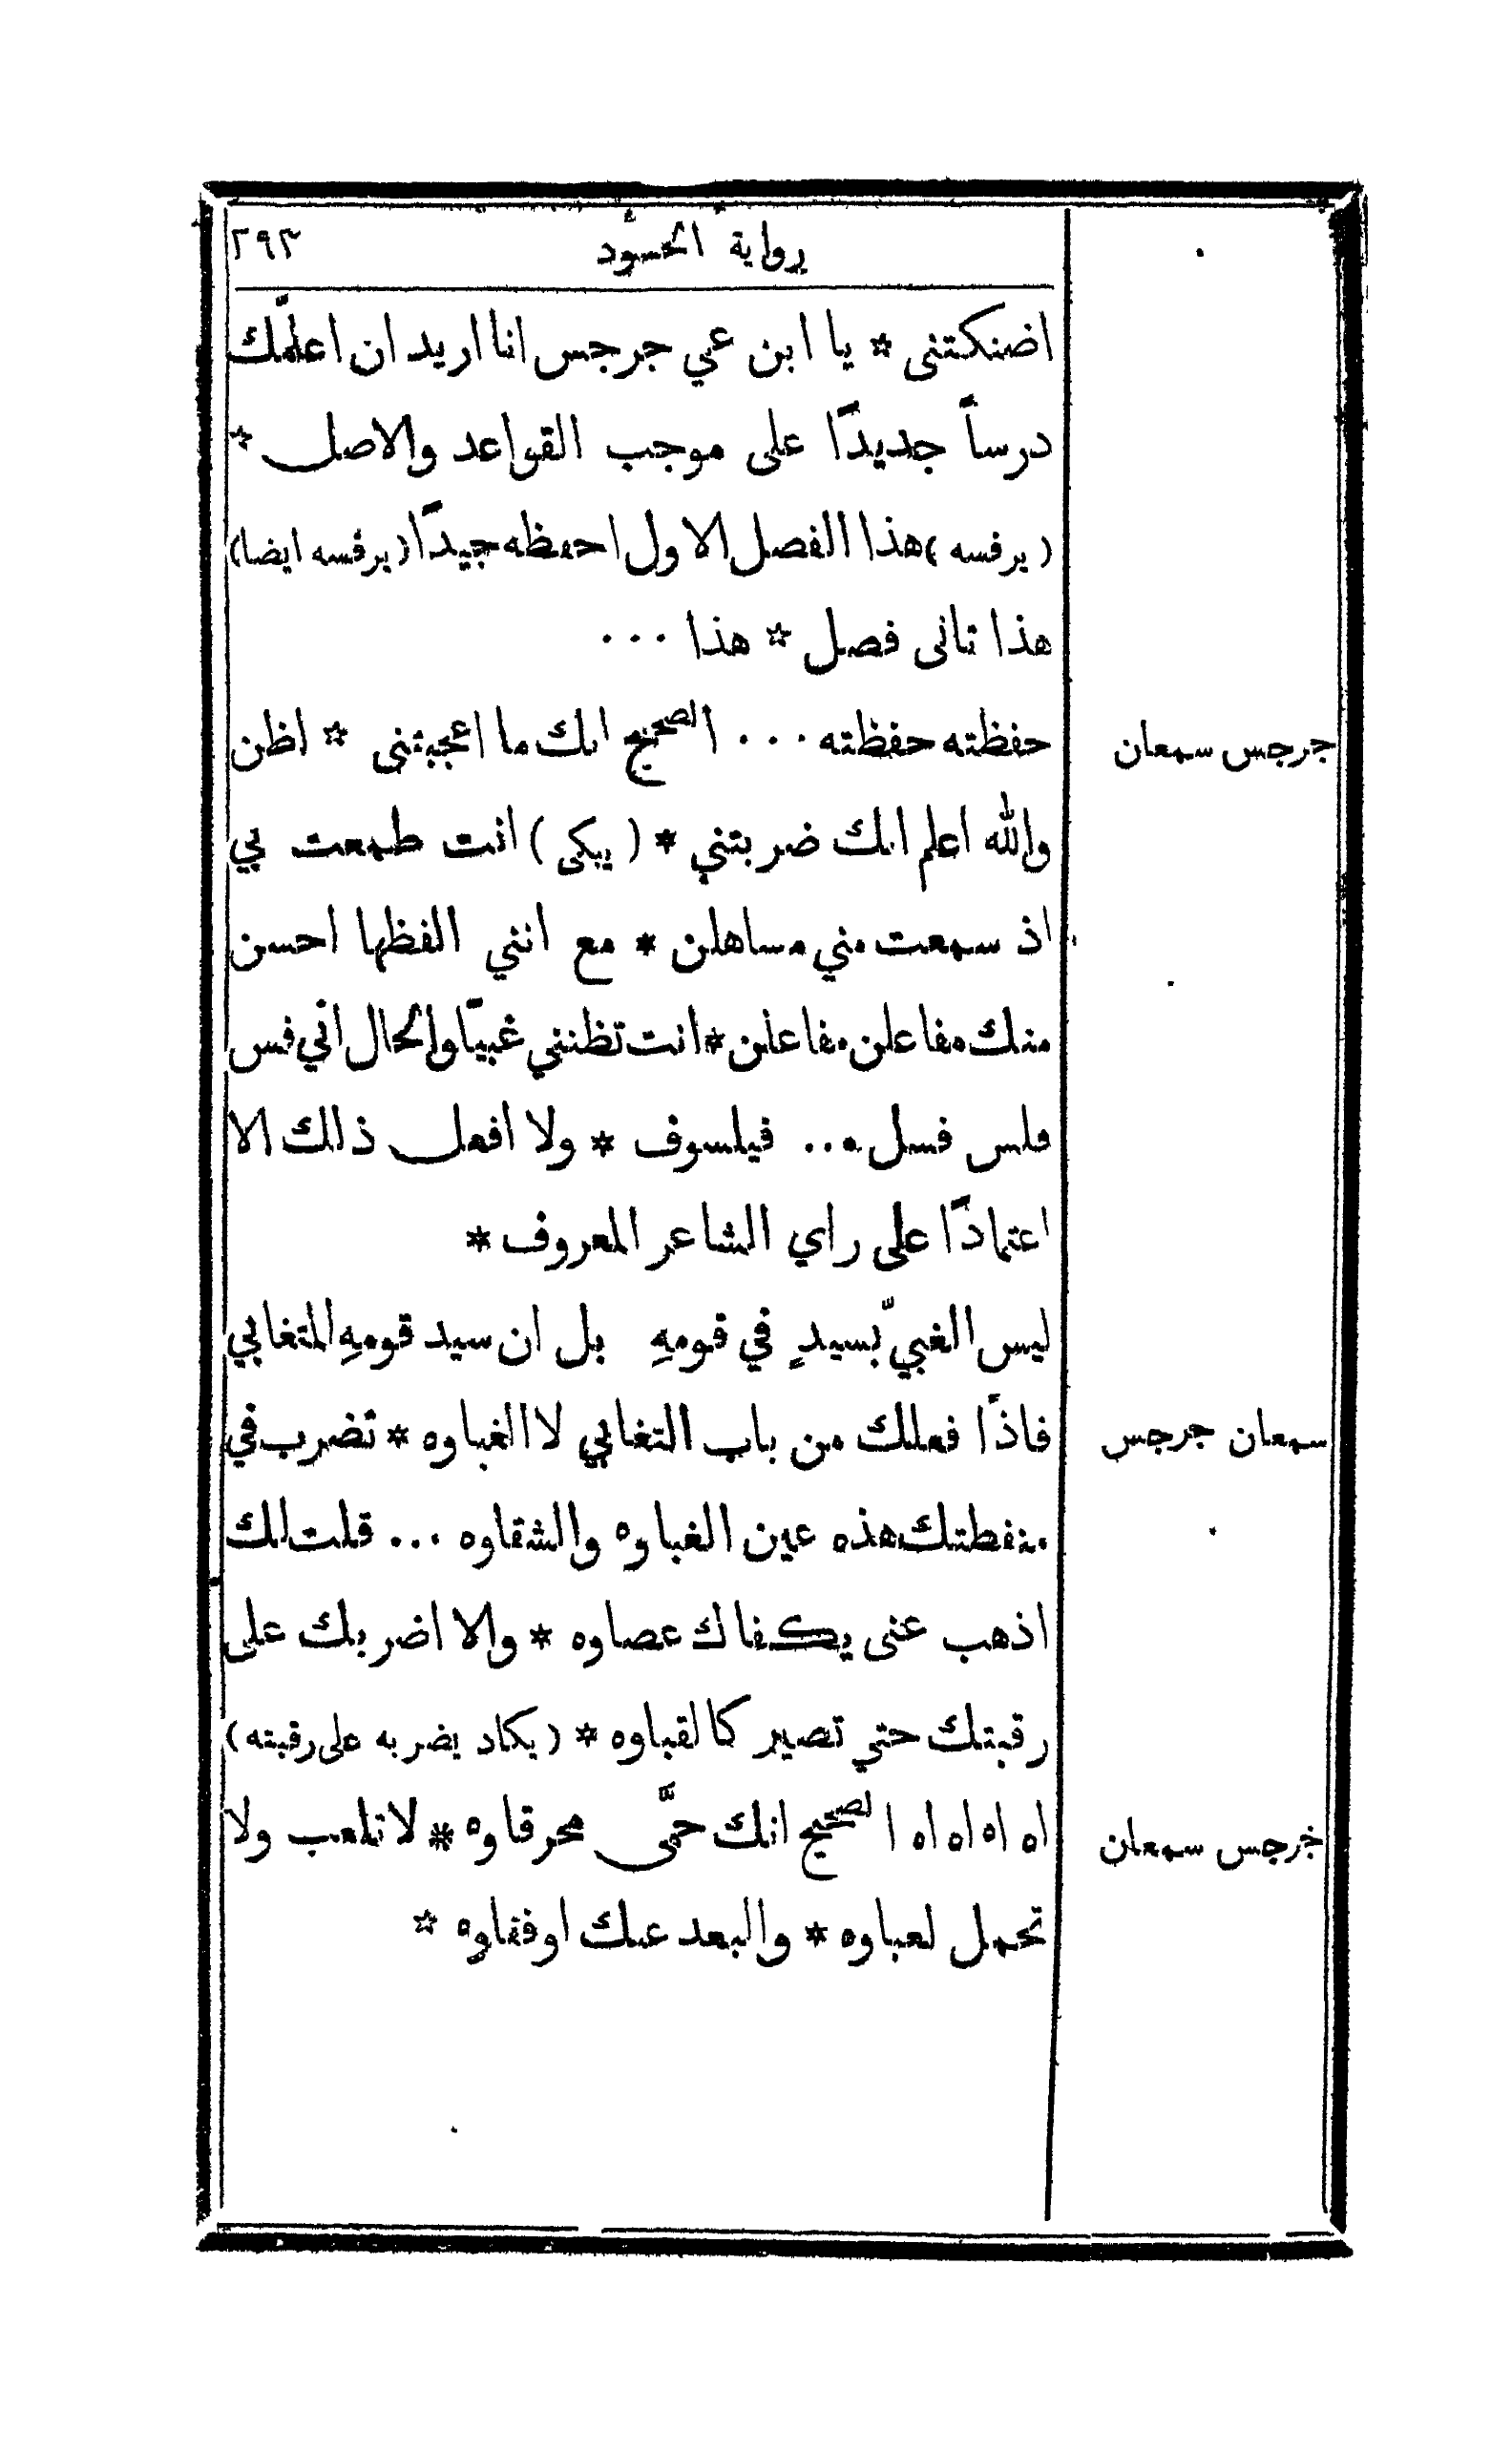 رواية الحسود ٢٩٣
اضنكتنى * يا ابن عمي جرجس انا اريد ان اعلّمك
درساً جديدًا على موجب القواعد والاصل *
(يرفسه) هذا الفصل الاول احفظه جيدًا (يرفسه ايضا)
هذا تانى فصل * هذا ...
جرجس سمعان حفظته حفظته ... الصحيح انك ما اعجبتنى * اظن
والله اعلم انك ضربتني * (يبكى) انت طمعت بي
اذ سمعت مني مساهلن * مع انني الفظها احسن
منك مفاعلن مفاعلن * انت تظنني غبيًا والحال اني فس
فلس فسل ... فيلسوف * ولا افعل ذلك الا
اعتمادًا على راي الشاعر المعروف *
ليس الغبيّ بسيدٍ في قومهِ بل ان سيد قومهِ المتغابي
سمعان جرجس فاذًا فعلك من باب التغابي لا الغباوه * تضرب في
منفطتك هذه عين الغباوه والشقاوه ... قلت لك
اذهب عنى يكفاك عصاوه * والا اضربك على
رقبتك حتي تصير كالقباوه * (يكاد يضربه على رقبته)
جرجس سمعان اه اه اه اه الصحيح انك حمَّى محرقاوه * لا تلعب ولا
تحمل لعباوه * والبعد عنك اوفقاوه *